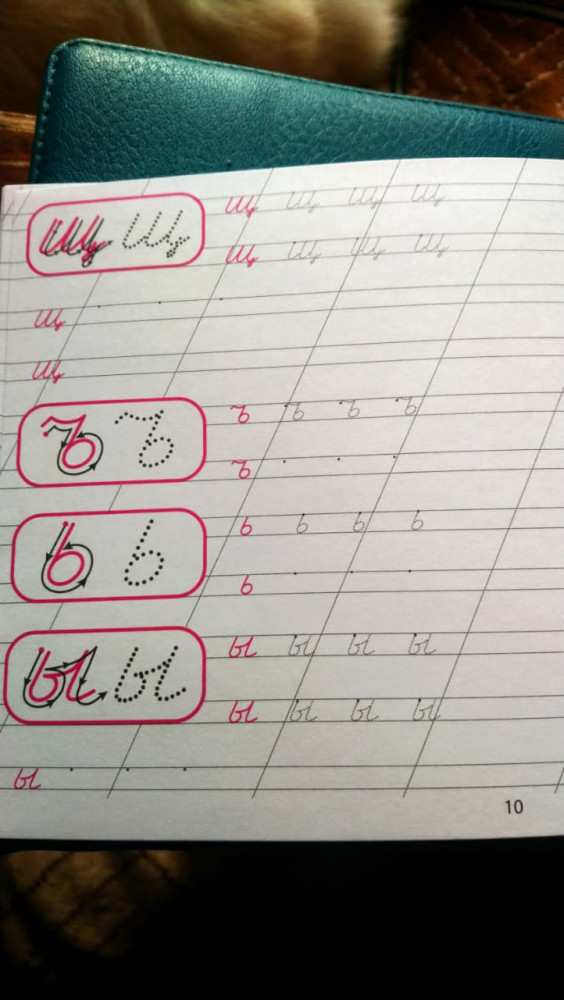 Щ Щ щ щ щ щ
щ щ щ щ
щ
щ
ъ ъ ъ ъ ъ ъ
ъ
ь ь ь ь ь ь
ь
ы ы ы ы ы ы
ы ы ы ы
ы
10